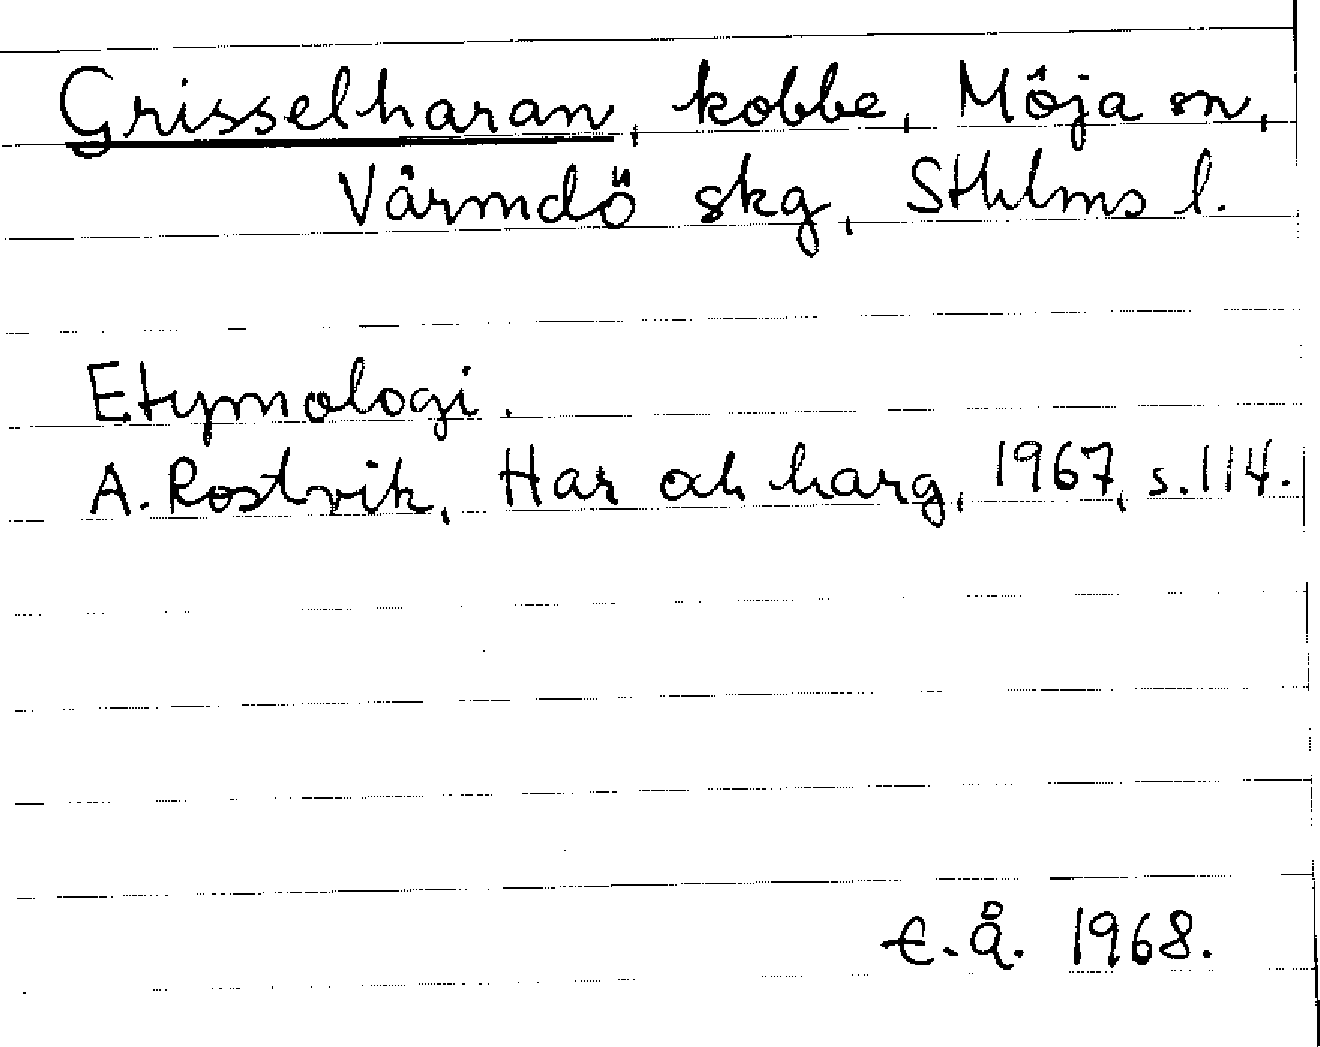 Grisselharan, kobbe, Möja sn,
Värmdö skg, Sthlms l.
Etymologi.
A. Rostvik, Har och harg, 1967, s. 114.
E. Å. 1968.